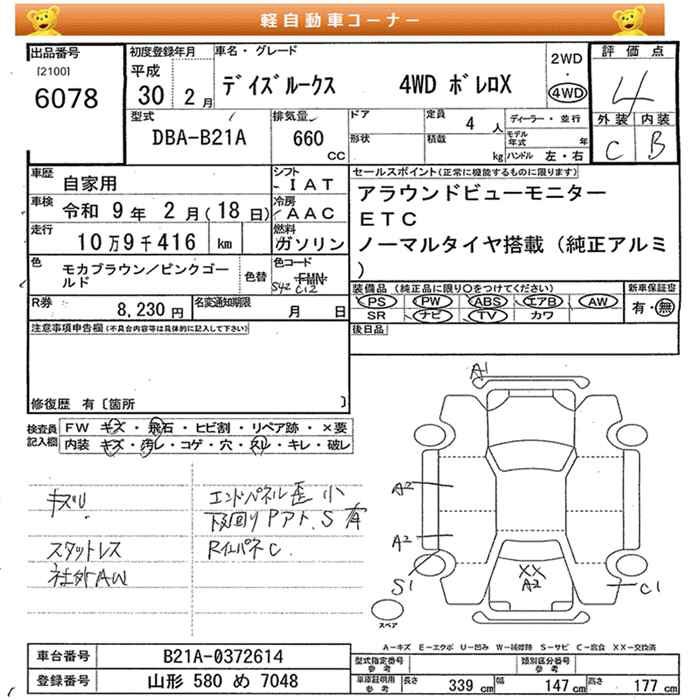 軽自動車コーナー
出品番号
[2100]
6078
初度登録年月
平成
30 2月
車名・グレード
デイズルークス 4WD ボレロX
2WD
・
4WD
評価点
4
外装 内装
C B
型式
DBA-B21A
排気量
660
CC
ドア
形状
定員
4人
積載
kg
ディーラー・並行
モデル年式 年
ハンドル 左・右
車歴
自家用
シフト
IAT
車検
令和 9年 2月(18日)
冷房
AAC
走行
10万9千416 km
燃料
ガソリン
セールスポイント(正常に機能するものに限ります)
アラウンドビューモニター
ETC
ノーマルタイヤ搭載(純正アルミ
)
色
モカブラウン/ピンクゴールド
色替
色コード
FMN
S42 C12
装備品(純正品に限り○をつけてください)
PS PW ABS エアB AW
SR ナビ TV カワ
新車保証書
有・無
R券
8,230円
名変通知期限
月 日
後日品
注意事項申告欄(不具合内容等は具体的に記入して下さい)
修復歴 有〔箇所 〕
検査員記入欄
FW キズ・飛石・ヒビ割・リペア跡・×要
内装 キズ・汚レ・コゲ・穴・スレ・キレ・破レ
キズU
スタットレス
社外AW
エンドパネル歪 小
下回りPアト、S有
RイエパネC
A1
A2
A2
S1
XX
A2
C1
スペア
A-キズ E-エクボ U-凹み W-補修跡 S-サビ C-腐食 XX-交換済
車台番号
B21A-0372614
登録番号
山形 580 め 7048
型式指定番号
参考
類別区分番号
参考
車庫証明用
参考
長さ 339cm 幅 147cm 高さ 177cm